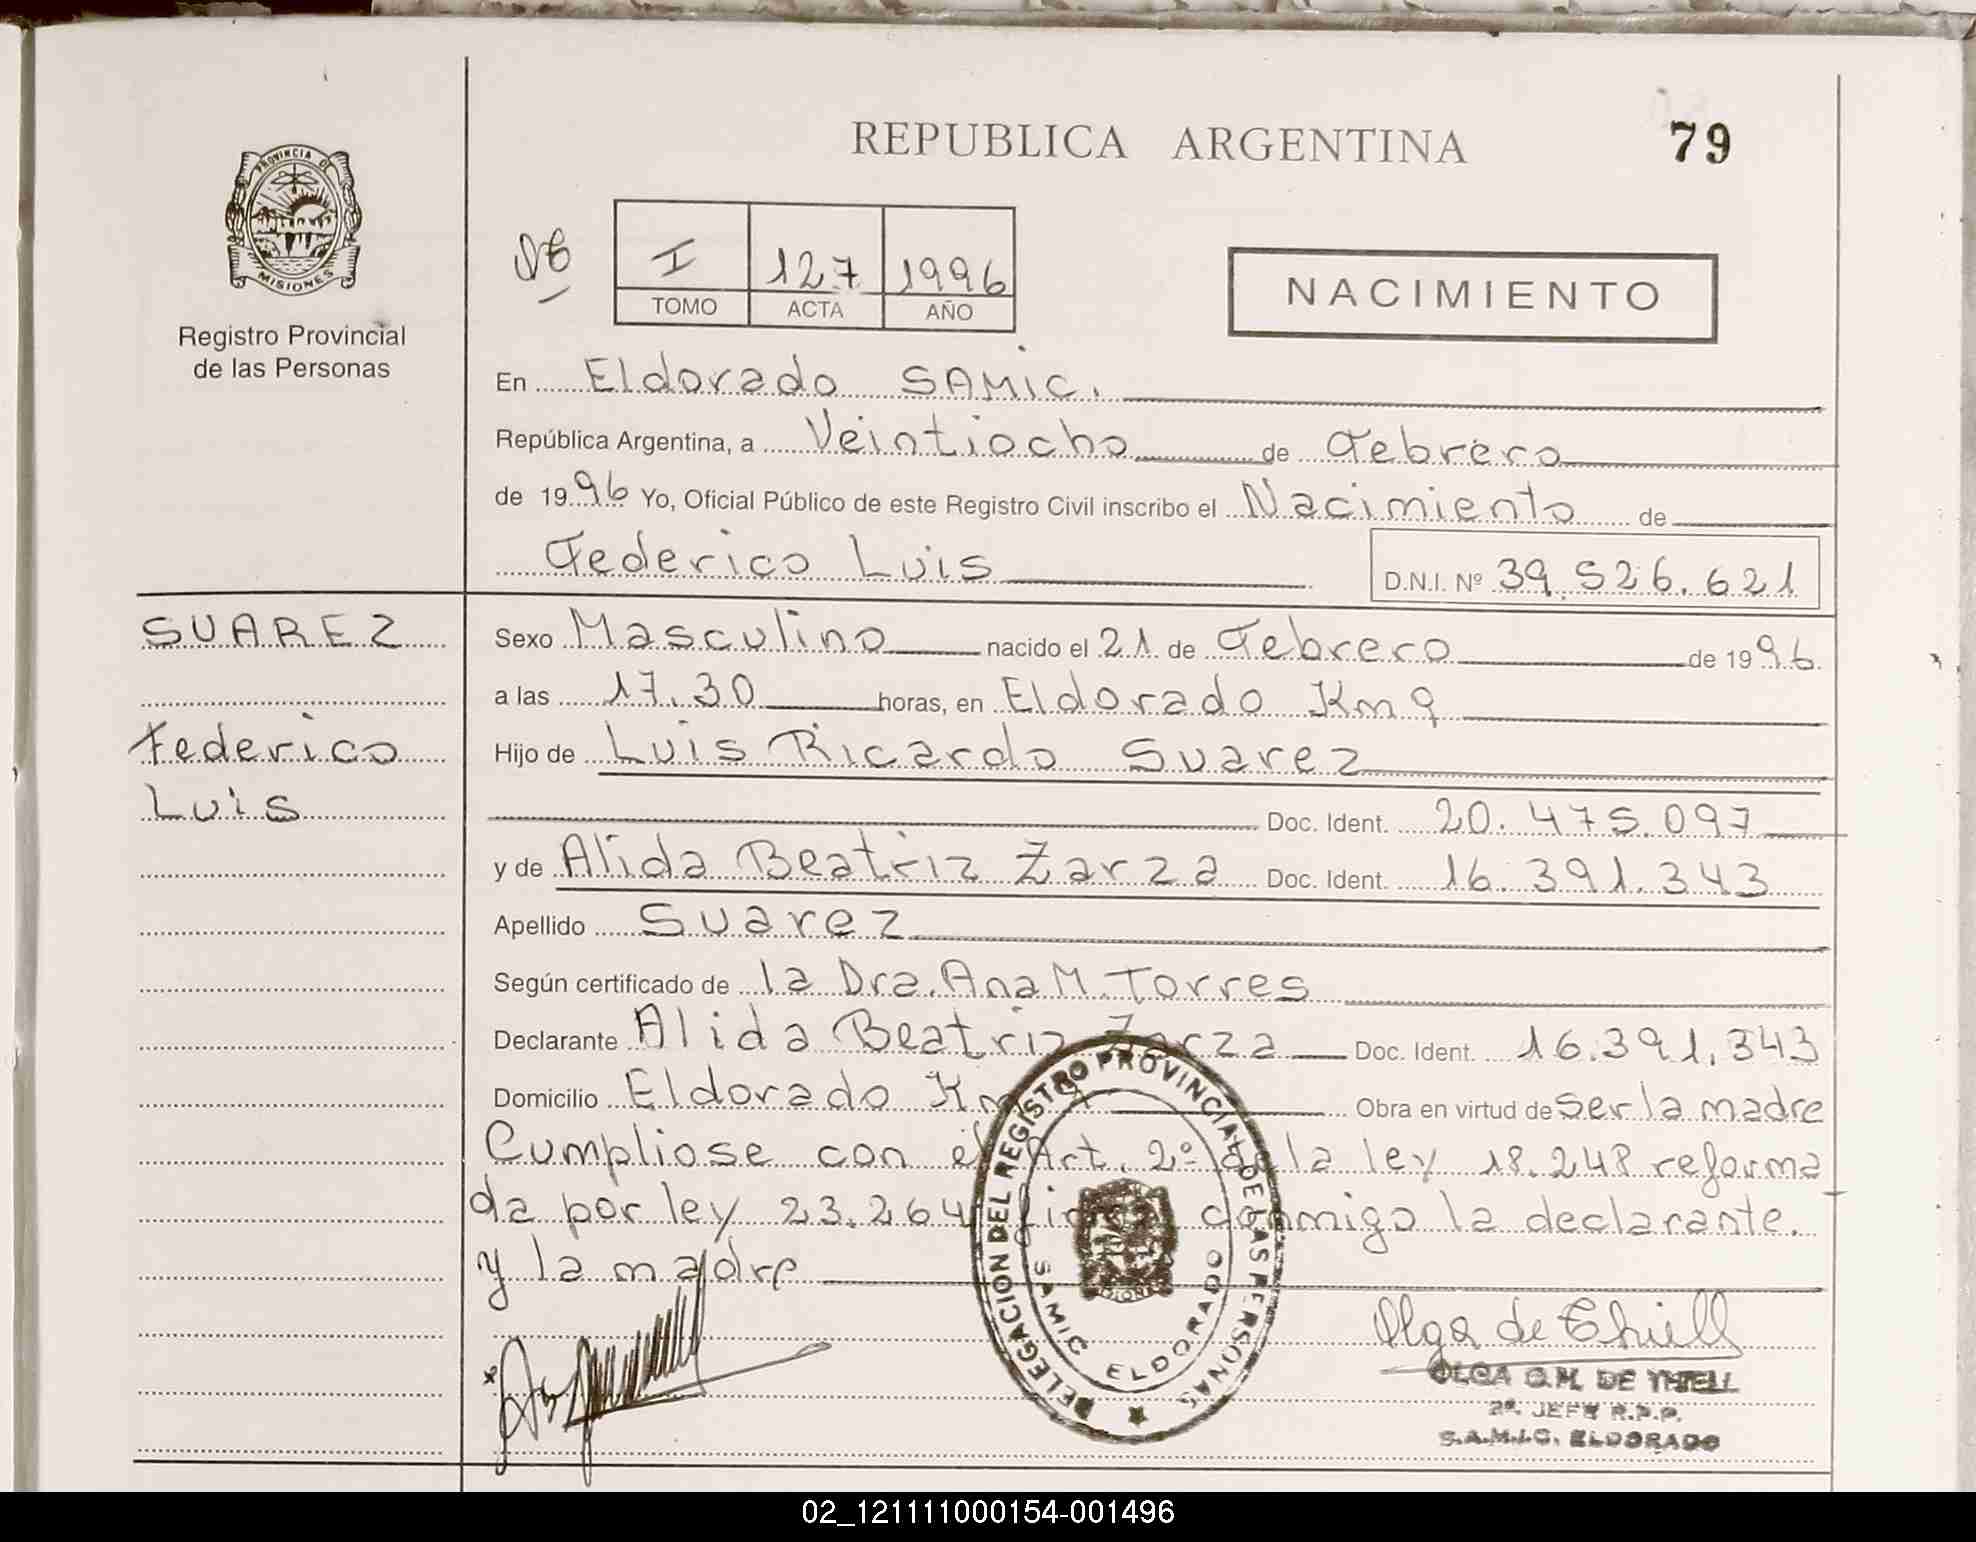 REPUBLICA ARGENTINA
79
PROVINCIA DE
MISIONES
Registro Provincial
de las Personas
I 127 1996
TOMO ACTA AÑO
NACIMIENTO
En Eldorado SAMIC.
República Argentina, a Veintiocho de Febrero
de 1996 Yo, Oficial Público de este Registro Civil inscribo el Nacimiento de
Federico Luis D.N.I. Nº 39.526.621
SUAREZ
Federico
Luis
Sexo Masculino nacido el 21 de Febrero de 1996.
a las 17.30 horas, en Eldorado Km 9
Hijo de Luis Ricardo Suarez
Doc. Ident. 20.475.097
y de Alida Beatriz Zarza Doc. Ident. 16.391.343
Apellido Suarez
Según certificado de la Dra. Ana M. Torres
Declarante Alida Beatriz Zarza Doc. Ident. 16.391.343
Domicilio Eldorado Km Obra en virtud de ser la madre
Cumpliose con el Art. 2º de la ley 18.248 reforma
da por ley 23.264 conmigo la declarante.
y la madre
DELEGACION DEL REGISTRO PROVINCIAL DE LAS PERSONAS
SAMIC ELDORADO
Olga de Thiell
OLGA O.M. DE THIELL
2º JEFE R.P.P.
S.A.M.I.C. ELDORADO
02_121111000154-001496